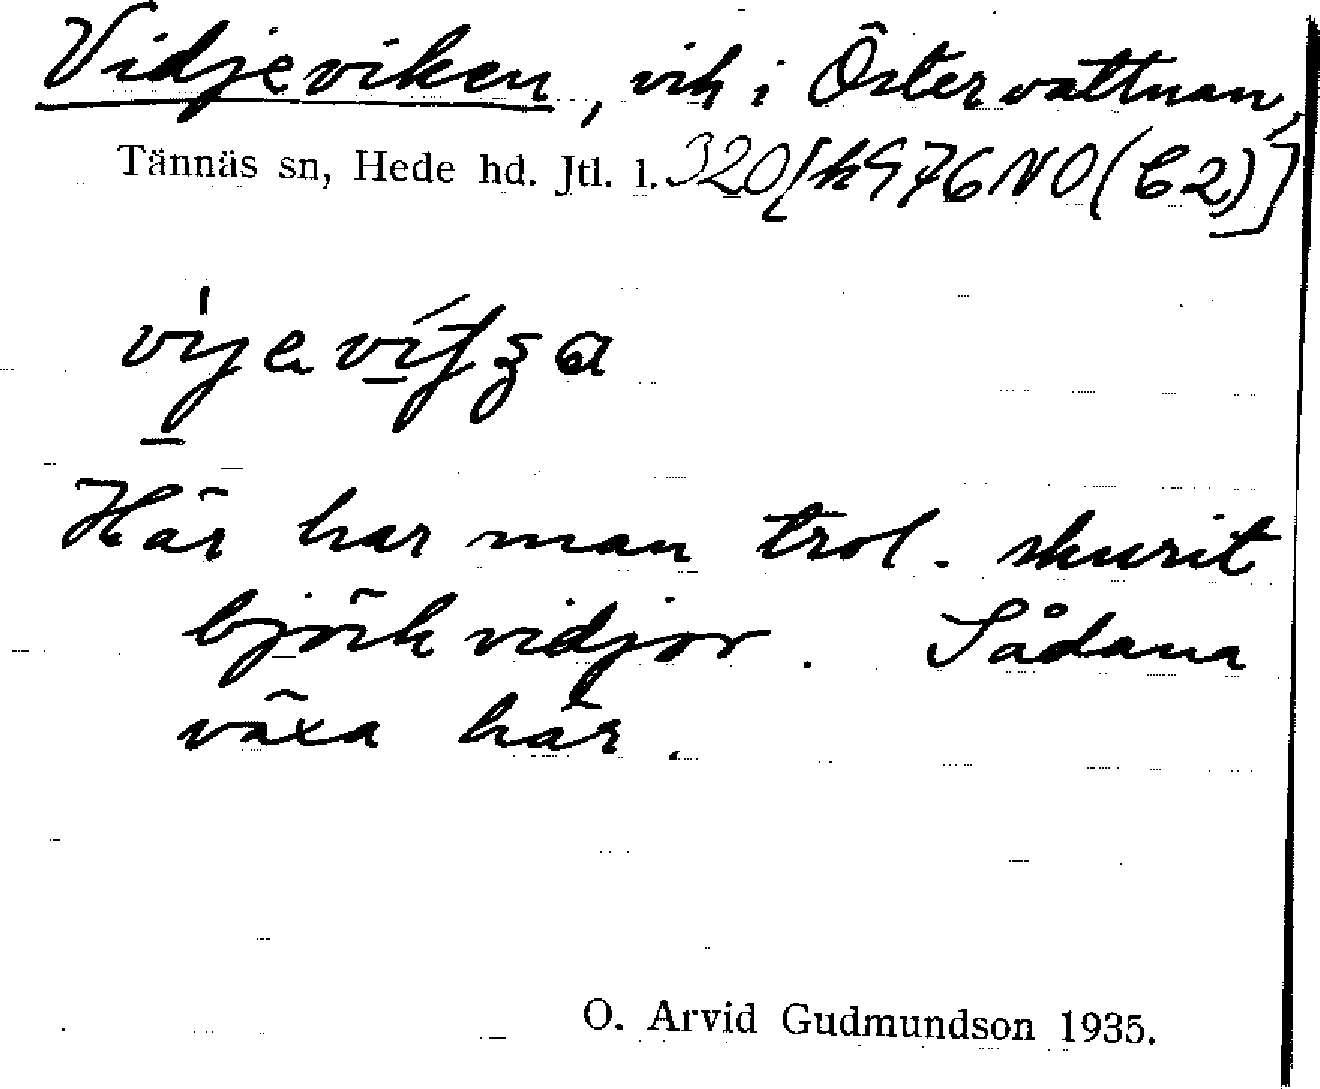 Vidjeviken, vik i Östervattnan,
Tännäs sn, Hede hd. Jtl. l. 320 [k 976 NO (C2)]
Här har man trol. skurit
björkvidjor. Sådana
växa här.
O. Arvid Gudmundson 1935.